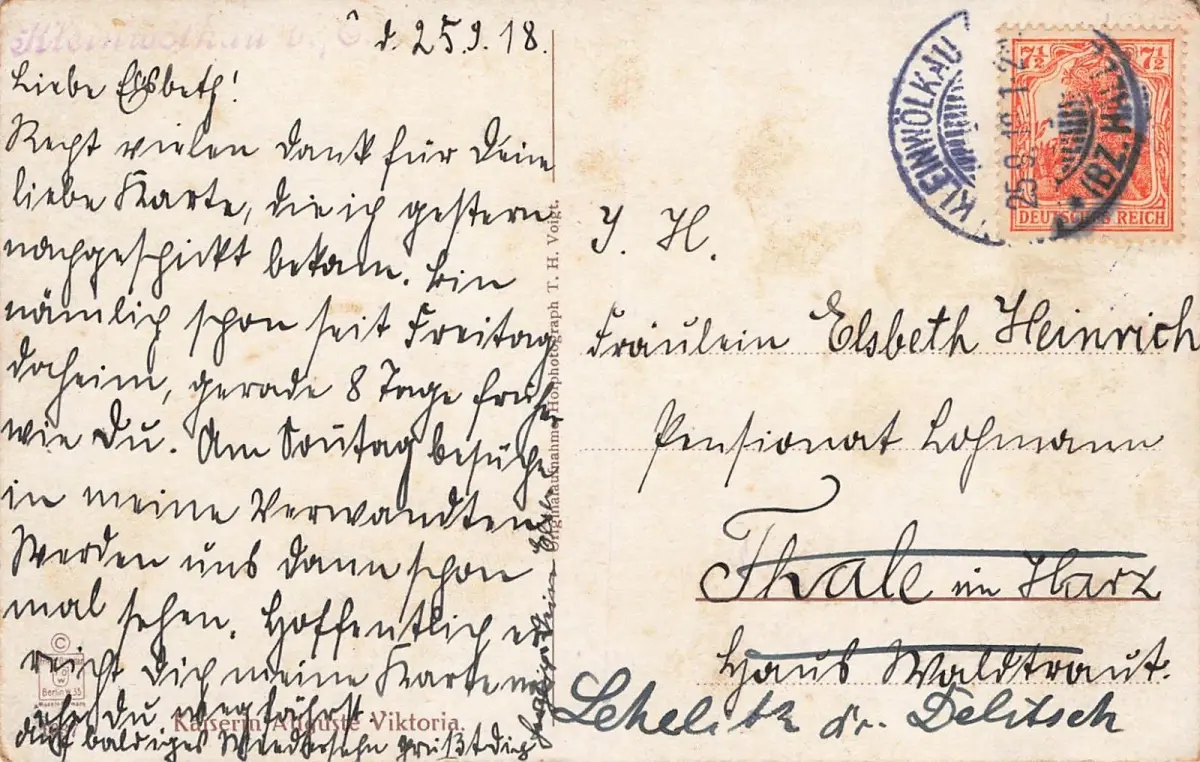 Kleinwölkau b. C.
d. 25.9.18.
Liebe Elsbeth!
Recht vielen Dank für Deine
liebe Karte, die ich gestern
nachgeschickt bekam. Bin
nämlich schon seit Freitag
daheim, gerade 8 Tage früher
wie Du. Am Sonntag besuche
ich meine Verwandten
Werden uns dann schon
mal sehen. Hoffentlich er
reicht Dich meine Karte noch
ehe Du wegfährst.
Auf baldiges Wiedersehn grüßt Dich
Dein
Originalaufnahme Hofphotograph T. H. Voigt.
©
Berlin W 35
Kaiserin Auguste Viktoria.
KLEINWÖLKAU
(BZ. HALLE)
25.9.18.1-2
7½ 7½
DEUTSCHES REICH
I. H.
Fräulein Elsbeth Heinrich
Pensionat Lohmann
Thale im Harz
Haus Waldtraut.
Lehelitz Kr. Delitsch